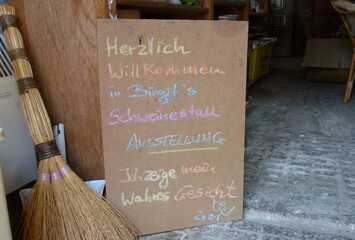 Herzlich
Willkommen
in Bürgit's
Schweinestall
AUSSTELLUNG
Ich zeige mein
Wahres Gesicht